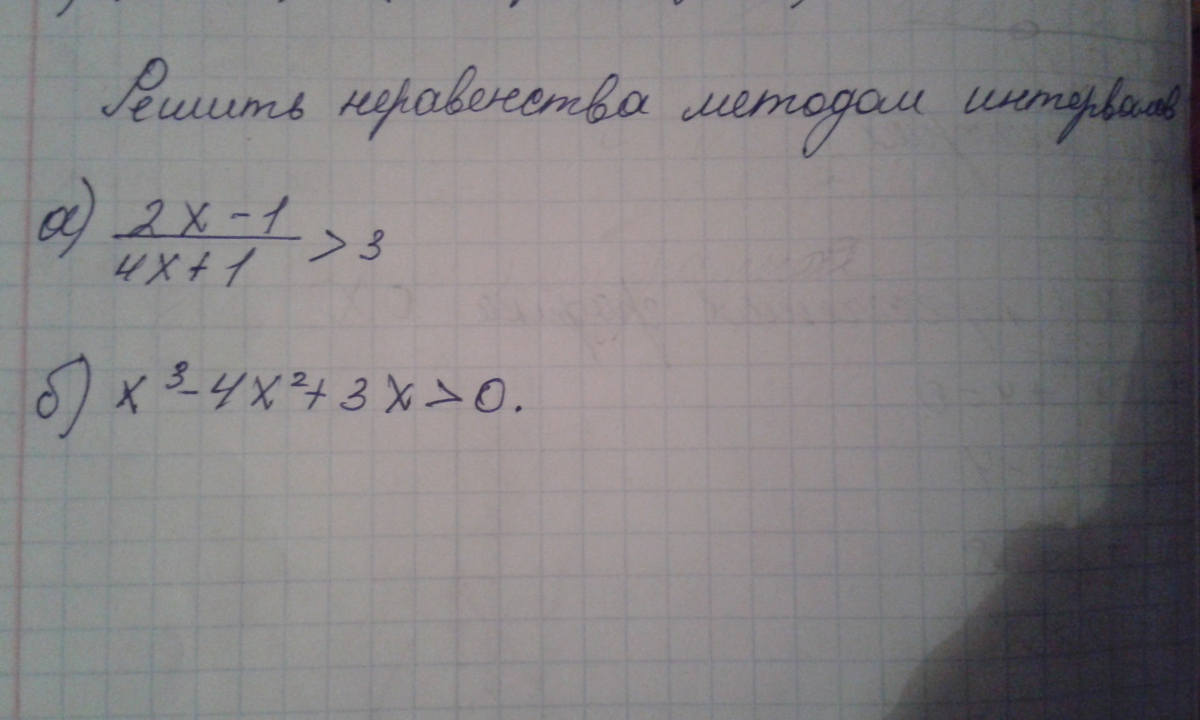 Решить неравенства методом интервалов
а) 2x-1/4x+1 > 3
б) x³-4x²+3x>0.